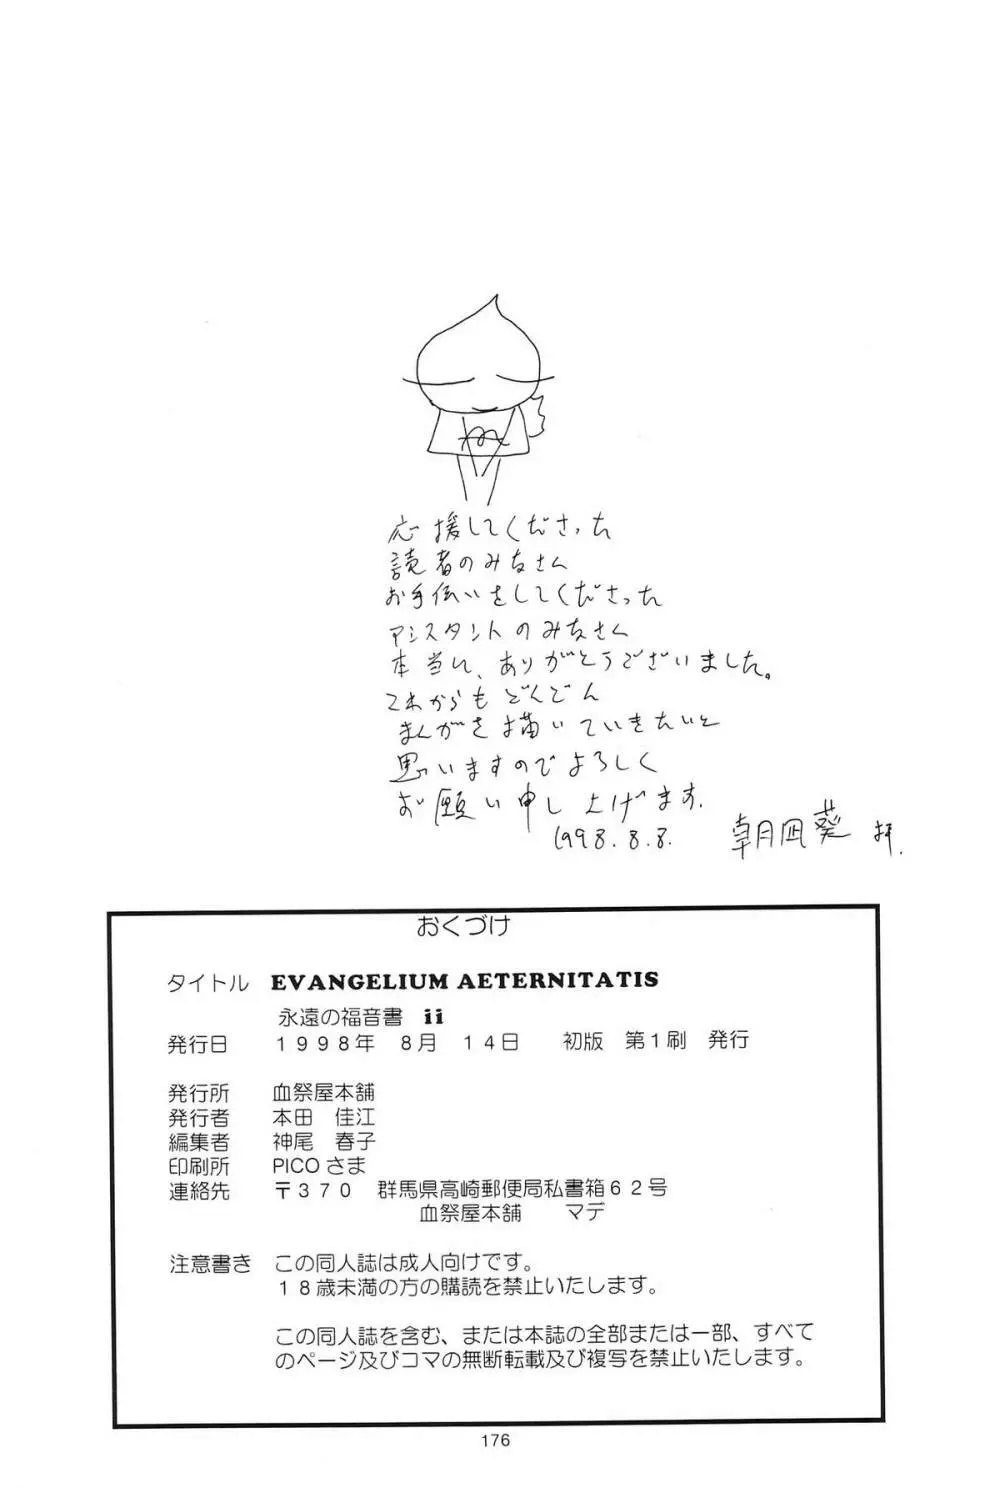 応援してくださった
読者のみなさん
お手伝いをしてくださった
アシスタントのみなさん
本当に、ありがとうございました。
これからもどんどん
まんがを描いていきたいと
思いますのでよろしく
お願い申し上げます.
1998.8.8. 朝凪葵 拝.
おくづけ
タイトル EVANGELIUM AETERNITATIS
永遠の福音書 ii
発行日 1998年 8月 14日 初版 第1刷 発行
発行所 血祭屋本舗
発行者 本田 佳江
編集者 神尾 春子
印刷所 PICOさま
連絡先 〒370 群馬県高崎郵便局私書箱62号
血祭屋本舗 マデ
注意書き この同人誌は成人向けです。
18歳未満の方の購読を禁止いたします。
この同人誌を含む、または本誌の全部または一部、すべて
のページ及びコマの無断転載及び複写を禁止いたします。
176